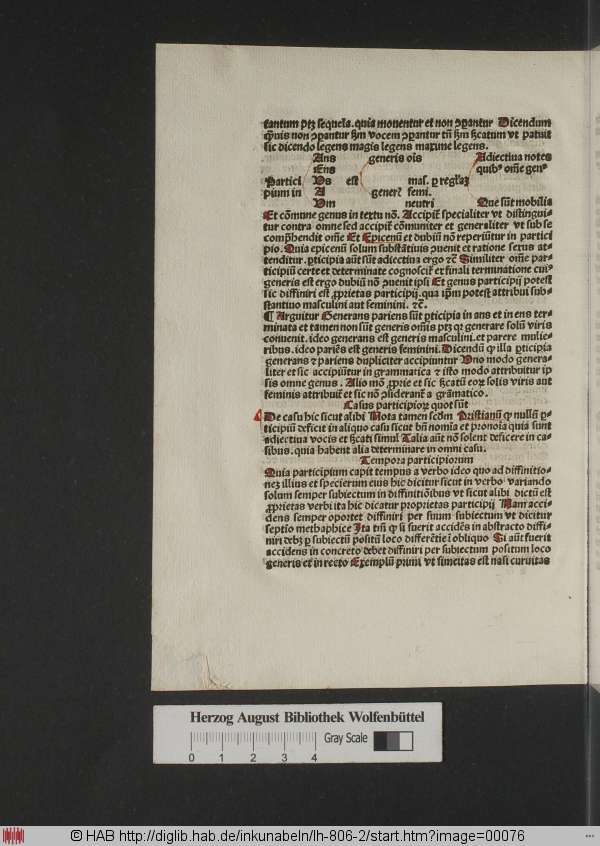 tantum ptꝫ sequela. quia mouentur et non ꝯꝑantur Dicendum
ꝙuis non ꝯꝑantur ẜm vocem ꝯꝑantur tñ ẜm ẜcatum vt patuit
sic dicendo legens magis legens maxime legens.
Ans generis oı̄s Adiectiua notes
Ens quibꝰ om̄e genꝰ
Partici Vs est mas. ꝑ regl̓aꝫ
pium in A generꝭ femi.
Vm neutri Que sūt mobilia
Et cōmune genus in textu nō. Accipit̉ specialiter vt distingui
tur contra omne sed accipit̉ cōmuniter et generaliter vt sub se
comp̄hendit om̄e Et Epicenū et dubiū nō reperiūtur in partici
pio. Quia epicenū solum substātiuis ꝯuenit et ratione sexus at-
tenditur. ꝑticipia aūt sūt adiectiua ergo ⁊c̄ Similiter om̄e par-
ticipiū certe et determinate cognoscit̉ ex finali terminatione cuiꝰ
generis est ergo dubiū nō ꝯuenit ipsi Et genus participij potest
sic diffiniri est ꝓprietas participij. qua ip̄m potest attribui sub-
stantiuo masculini aut feminini. ⁊c̄.
¶ Arguitur Generans pariens sūt ꝑticipia in ans et in ens ter-
minata et tamen non sūt generis om̄is ptꝫ qꝛ generare solū viris
conuenit. ideo generans est generis masculini. et parere mulie-
ribus. ideo pariēs est generis feminini. Dicendū ꝙ illa ꝑticipia
generans ⁊ pariens dupliciter accipiuntur Vno modo genera-
liter et sic accipiūtur in grammatica ⁊ isto modo attribuitur ip
sis omne genus. Alio mō ꝓprie et sic ẜcatū eoꝝ solis viris aut
feminis attribuit̉ et sic nō ꝯsiderant̉ a grāmatico.
Casus participioꝝ quot sūt
De casu hic sicut alibi Nota tamen scd̄m Pristianū ꝙ nullū ꝑ-
ticipiū deficit in aliquo casu sicut bn̄ nomīa et pronoīa quia sunt
adiectiua vocis et ẜcati simul Talia aūt nō solent deficere in ca-
sibus. quia habent alia determinare in omni casu.
Tempora participiorum
Quia participium capit tempus a verbo ideo quo ad diffinitio-
neꝫ illius et specierum eius hic dicitur sicut in verbo variando
solum semper subiectum in diffinitiōibus vt sicut alibi dictū est
ꝓprietas verbi ita hic dicatur proprietas participij Nam acci-
dens semper oportet diffiniri per suum subiectum vt dicitur
septīo methaphice Ita tn̄ ꝙ si fuerit accidēs in abstracto diffi-
niri debꝫ ꝑ subiectū positū loco differētie ī obliquo Si aūt fuerit
accidens in concreto debet diffiniri per subiectum positum loco
generis et in recto Exemplū primi vt simeitas est nasi curuitas
Herzog August Bibliothek Wolfenbüttel
Gray Scale
0 1 2 3 4
© HAB http://diglib.hab.de/inkunabeln/lh-806-2/start.htm?image=00076